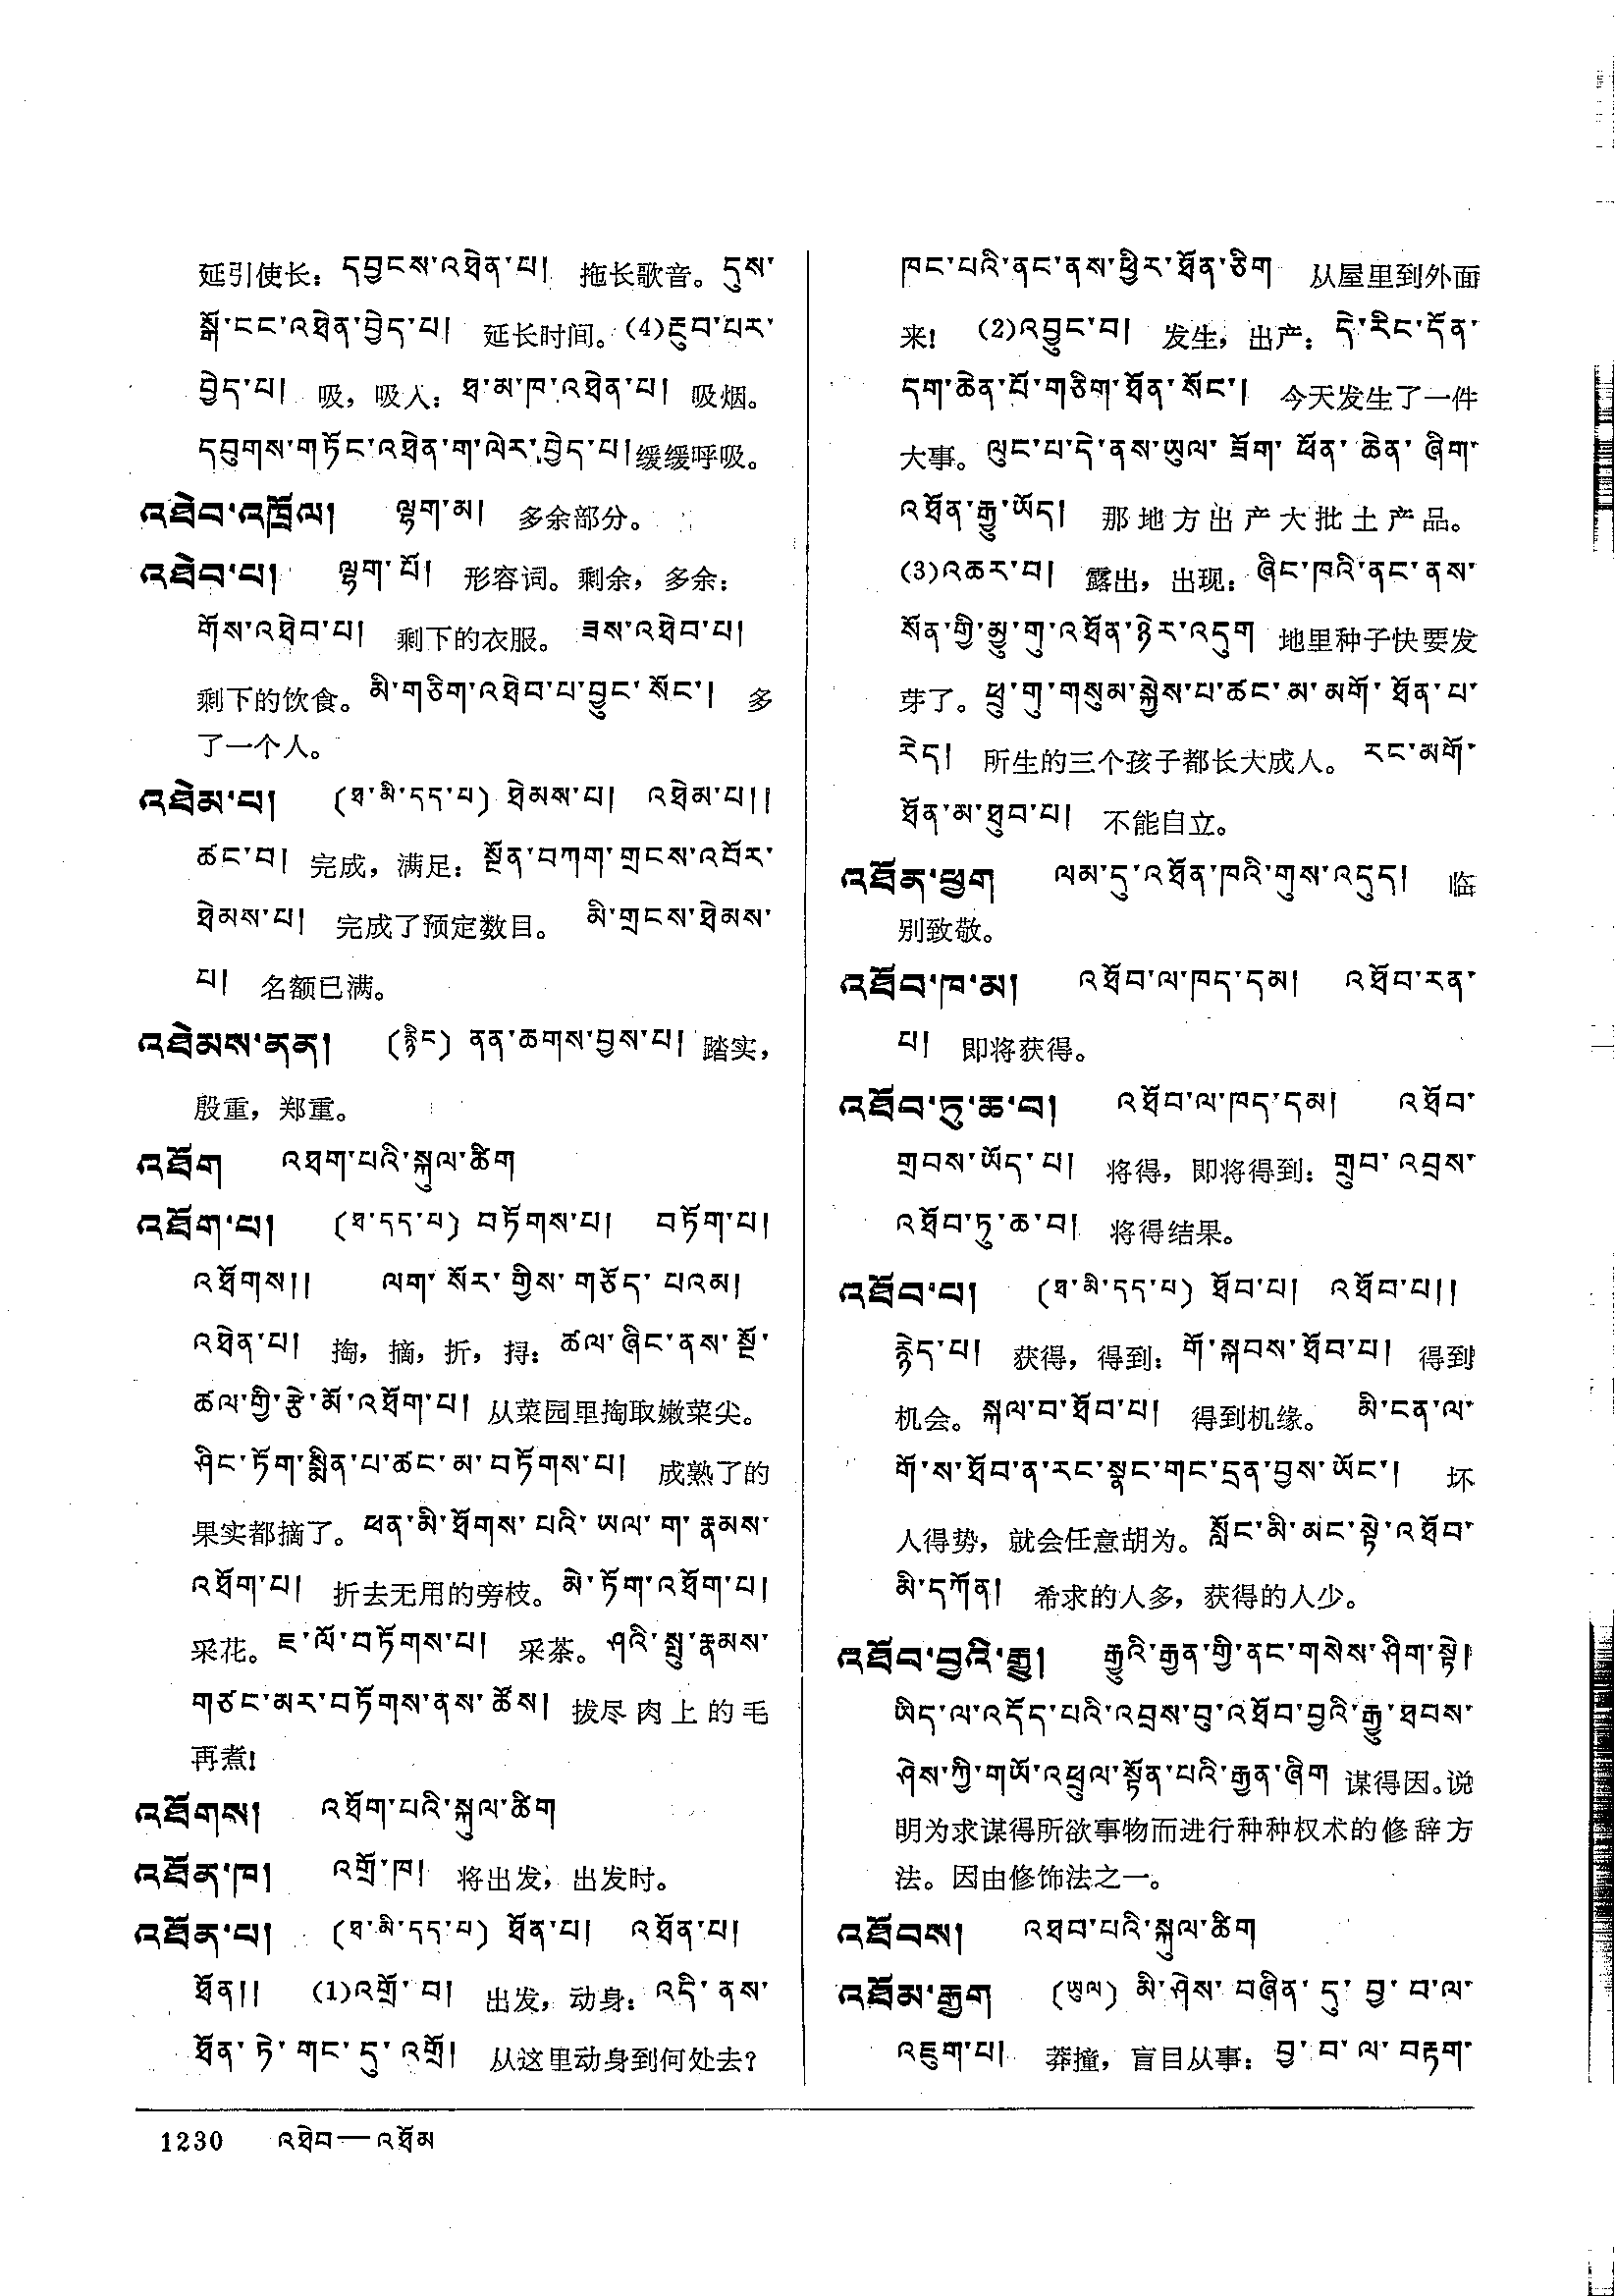 延引使长：དབྱངས་འཐེན་པ། 拖长歌音。དུས་
སྒོ་ངང་འཐེན་བྱེད་པ། 延长时间。(4)རྔུབ་པར་
བྱེད་པ། 吸，吸入：ཐ་མ་ཁ་འཐེན་པ། 吸烟。
དབུགས་གཏོང་འཐེན་ག་ལེར་བྱེད་པ།缓缓呼吸。
འཐེབ་འཁྲོལ། ལྷག་མ། 多余部分。
འཐེབ་པ། ལྷག་པོ། 形容词。剩余，多余：
གོས་འཐེབ་པ། 剩下的衣服。 ཟས་འཐེབ་པ།
剩下的饮食。མི་གཅིག་འཐེབ་པ་བྱུང་སོང་། 多
了一个人。
འཐེམ་པ། (ཐ་མི་དད་པ) ཐེམས་པ། འཐེམ་པ།།
ཚང་བ། 完成，满足：སྔོན་བཀག་གྲངས་འབོར་
ཐེམས་པ། 完成了预定数目。 མི་གྲངས་ཐེམས་
པ། 名额已满。
འཐེམས་ནན། (རྙིང) ནན་ཆགས་བྱས་པ། 踏实，
殷重，郑重。
འཐོག འཐག་པའི་སྐུལ་ཚིག
འཐོག་པ། (ཐ་དད་པ) བཏོགས་པ། བཏོག་པ།
འཐོགས།། ལག་སོར་གྱིས་གཅོད་པའམ།
འཐེན་པ། 掏，摘，折，挦：ཚལ་ཞིང་ནས་སྔོ་
ཚལ་གྱི་རྩེ་མོ་འཐོག་པ། 从菜园里掏取嫩菜尖。
ཤིང་ཏོག་སྨིན་པ་ཚང་མ་བཏོགས་པ། 成熟了的
果实都摘了。ཕན་མི་ཐོགས་པའི་ཡལ་ག་རྣམས་
འཐོག་པ། 折去无用的旁枝。མེ་ཏོག་འཐོག་པ།
采花。ཇ་ལོ་བཏོགས་པ། 采茶。ཤའི་སྤུ་རྣམས་
གཙང་མར་བཏོགས་ནས་ཚོས། 拔尽肉上的毛
再煮!
འཐོགས། འཐོག་པའི་སྐུལ་ཚིག
འཐོན་ཁ། འགྲོ་ཁ། 将出发，出发时。
འཐོན་པ། (ཐ་མི་དད་པ) ཐོན་པ། འཐོན་པ།
ཐོན།། (1)འགྲོ་བ། 出发，动身：འདི་ནས་
ཐོན་ཏེ་གང་དུ་འགྲོ། 从这里动身到何处去?
ཁང་པའི་ནང་ནས་ཕྱིར་ཐོན་ཅིག 从屋里到外面
来! (2)འབྱུང་བ། 发生，出产：དེ་རིང་དོན་
དག་ཆེན་པོ་གཅིག་ཐོན་སོང་། 今天发生了一件
大事。ལུང་པ་དེ་ནས་ཡུལ་ཟོག་ཕོན་ཆེན་ཞིག་
འཐོན་རྒྱུ་ཡོད། 那地方出产大批土产品。
(3)འཆར་བ། 露出，出现：ཞིང་ཁའི་ནང་ནས་
སོན་གྱི་མྱུ་གུ་འཐོན་ཉེར་འདུག 地里种子快要发
芽了。ཕྲུ་གུ་གསུམ་སྐྱེས་པ་ཚང་མ་མགོ་ཐོན་པ་
རེད། 所生的三个孩子都长大成人。རང་མགོ་
ཐོན་མ་ཐུབ་པ། 不能自立。
འཐོན་ཕྱག ལམ་དུ་འཐོན་ཁའི་གུས་འདུད། 临
别致敬。
འཐོབ་ཁ་མ། འཐོབ་ལ་ཁད་དམ། འཐོབ་རན་
པ། 即将获得。
འཐོབ་ཏུ་ཆ་བ། འཐོབ་ལ་ཁད་དམ། འཐོབ་
གྲབས་ཡོད་པ། 将得，即将得到：གྲུབ་འབྲས་
འཐོབ་ཏུ་ཆ་བ། 将得结果。
འཐོབ་པ། (ཐ་མི་དད་པ) ཐོབ་པ། འཐོབ་པ།།
རྙེད་པ། 获得，得到：གོ་སྐབས་ཐོབ་པ། 得到
机会。སྐལ་བ་ཐོབ་པ། 得到机缘。 མི་ངན་ལ་
གོ་ས་ཐོབ་ན་རང་སྣང་གང་དྲན་བྱས་ཡོང་། 坏
人得势，就会任意胡为。སློང་མི་མང་སྟེ་འཐོབ་
མི་དཀོན། 希求的人多，获得的人少。
འཐོབ་བྱའི་རྒྱུ། རྒྱུའི་རྒྱན་གྱི་ནང་གསེས་ཤིག་སྟེ།
ཡིད་ལ་འདོད་པའི་འབྲས་བུ་འཐོབ་བྱའི་རྒྱུ་ཐབས་
ཤེས་ཀྱི་གཡོ་འཕྲུལ་སྟོན་པའི་རྒྱན་ཞིག 谋得因。说
明为求谋得所欲事物而进行种种权术的修辞方
法。因由修饰法之一。
འཐོབས། འཐབ་པའི་སྐུལ་ཚིག
འཐོམ་རྒྱག (ཡུལ) མི་ཤེས་བཞིན་དུ་བྱ་བ་ལ་
འཇུག་པ། 莽撞，盲目从事：བྱ་བ་ལ་བརྟག་
1230 འཐེབ—འཐོམ